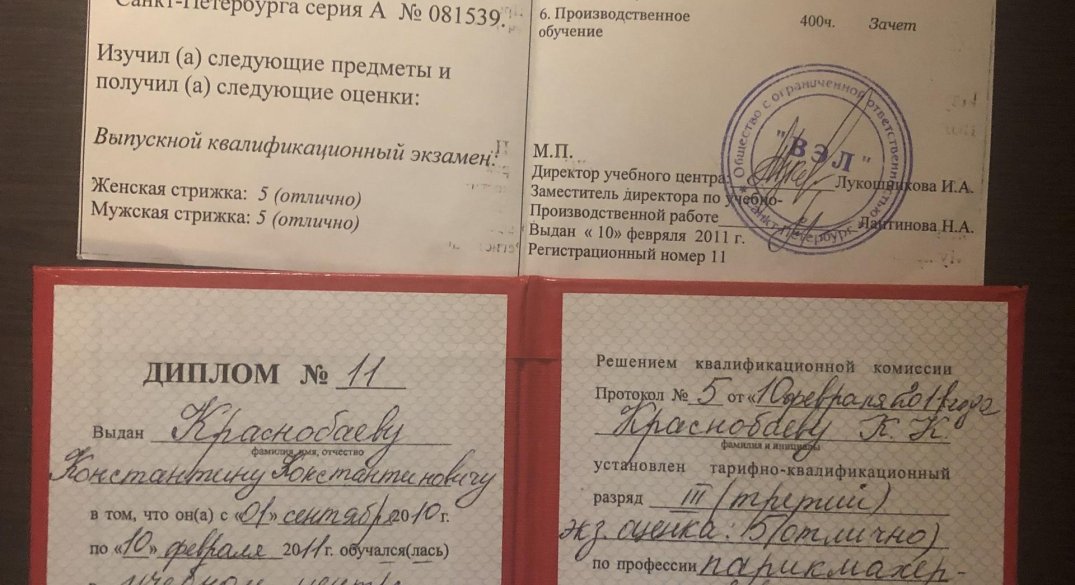 Санкт-Петербурга серия А № 081539.
Изучил (а) следующие предметы и
получил (а) следующие оценки:
Выпускной квалификационный экзамен:
Женская стрижка: 5 (отлично)
Мужская стрижка: 5 (отлично)
6. Производственное 400ч. Зачет
обучение
М.П.
Директор учебного центра: Лукошникова И.А.
Заместитель директора по учебно-
Производственной работе Лаптинова Н.А.
Выдан « 10» февряля 2011 г.
Регистрационный номер 11
Общество с ограниченной ответственностью
"ВЭЛ"
Санкт-Петербург
ДИПЛОМ № 11
Выдан Краснобаеву
фамилия, имя, отчество
Константину Константиновичу
в том, что он(а) с «01» сентября 2010 г.
по «10» февраля 2011 г. обучался(лась)
в учебном центре
Решением квалификационной комиссии
Протокол № 5 от «10 февраля 2011 года
Краснобаеву К. К.
фамилия и инициалы
установлен тарифно-квалификационный
разряд III (третий)
экз. оценка: 5 (отлично)
по профессии парикмахер-